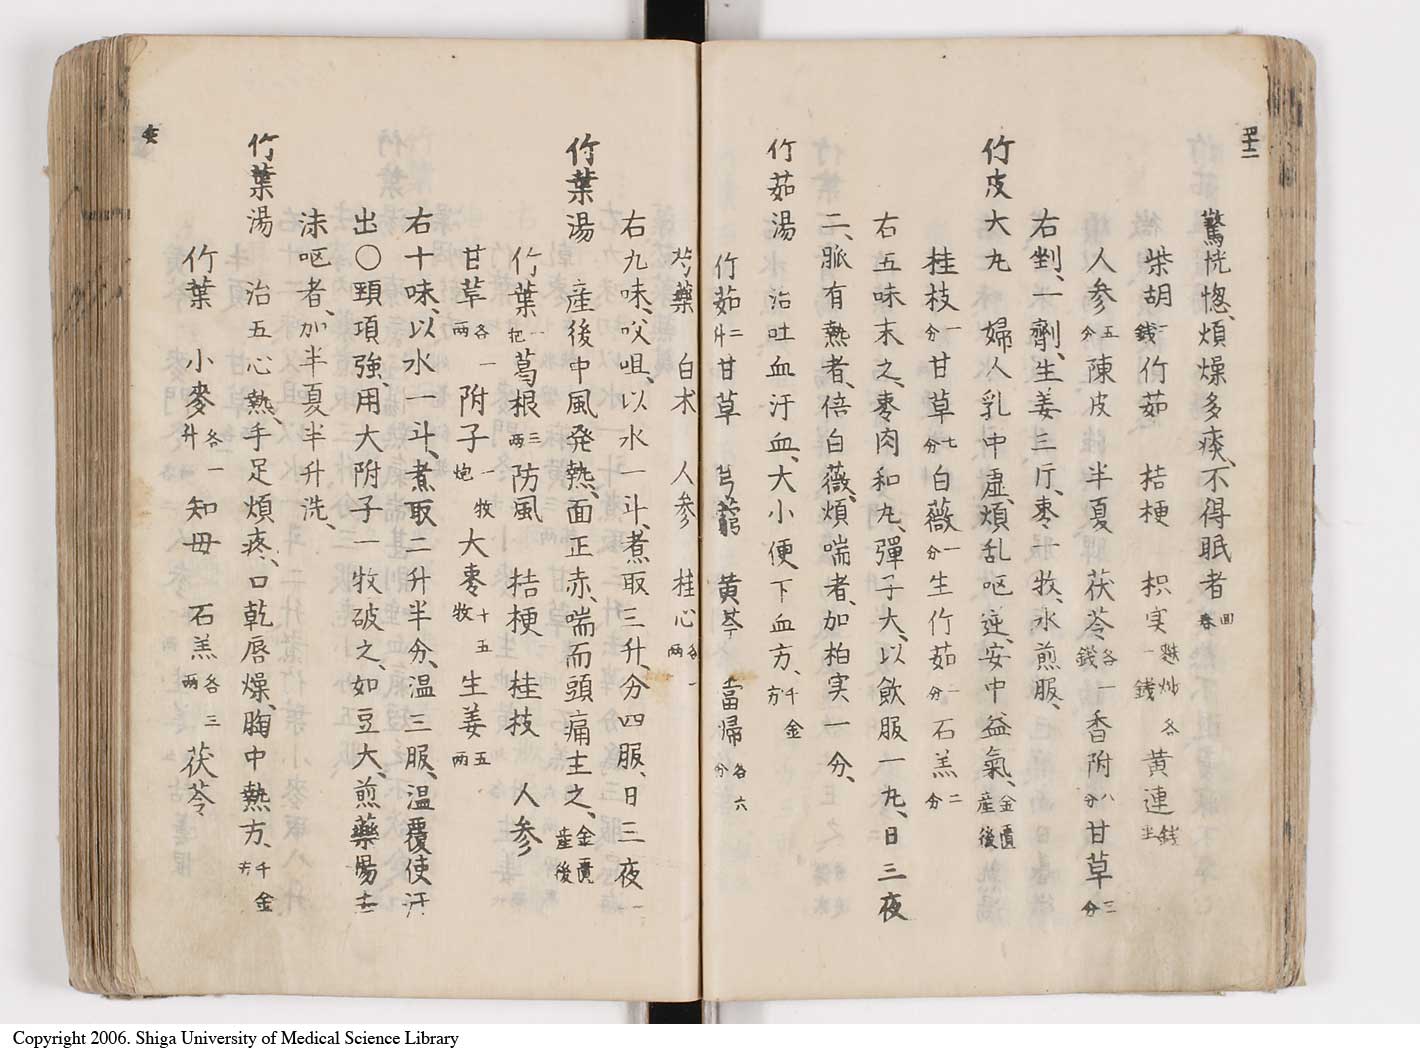 驚恍惚、煩燥多痰、不得眠者 回春
柴胡 一錢 竹茹 桔梗 枳実 麩炒各一錢 黄連 半錢
人参 五分 陳皮 半夏 茯苓 各一錢 香附 八分 甘草 三分
右剉、一劑、生姜三斤、枣一牧、水煎服、
竹皮大丸 婦人乳中虚、煩乱呕逆、安中益氣、金匱産後
桂枝 一分 甘草 七分 白薇 一分 生竹茹 二分 石羔 二分
右五味末之、枣肉和丸、彈子大、以飲服一丸、日三夜
二、脈有熱者、倍白薇、煩喘者、加柏実一分、
竹茹湯 治吐血汗血、大小便下血方、千金方
竹茹 二升 甘草 芎藭 黄芩 當帰 各六分
芍藥 白朮 人参 桂心 各一兩
右九味、㕮咀、以水一斗、煮取三升、分四服、日三夜一
竹葉湯 産後中風発熱、面正赤、喘而頭痛主之、金匱産後
竹葉 一把 葛根 三兩 防風 桔梗 桂枝 人参
甘草 各一兩 附子 一牧炮 大枣 十五牧 生姜 五兩
右十味、以水一斗、煮取二升半、分温三服、温覆使汗
出〇頸項強、用大附子一牧破之、如豆大、煎藥湯去
沫呕者、加半夏半升洗、
竹葉湯 治五心熱、手足煩疼、口乾唇燥、胸中熱方、千金方
竹葉 小麥 各一升 知母 石羔 各三兩 茯苓
Copyright 2006. Shiga University of Medical Science Library